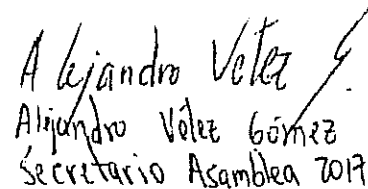 Alejandro Vélez G.
Alejandro Vélez Gómez
Secretario Asamblea 2017